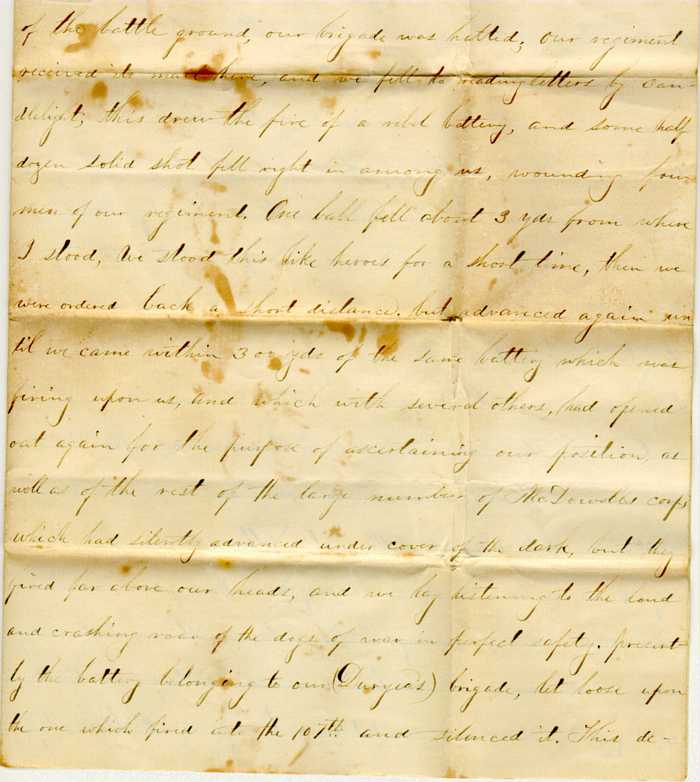 of the battle ground, our brigade was halted; our regiment
received its mail here, and we fell to reading letters by can-
dlelight; this drew the fire of a rebel battery, and some half
dozen solid shot fell right in among us, wounding four
men of our regiment. One ball fell about 3 yds from where
I stood, We stood this like heroes for a short time, then we
were ordered back a short distance. but advanced again un
til we came within 300 yds of the same battery which was
firing upon us, and which with several others, had opened
out again for the purpose of ascertaining our position, as
well as of the rest of the large number of McDowels corps
which had silently advanced under cover of the dark, but they
fired far above our heads, and we lay listening to the loud
and crashing roar of the dogs of war in perfect safety. present
ly the battery belonging to our (Duryea's) brigade, let loose upon
the one which fired into the 107th and silenced it. This de-